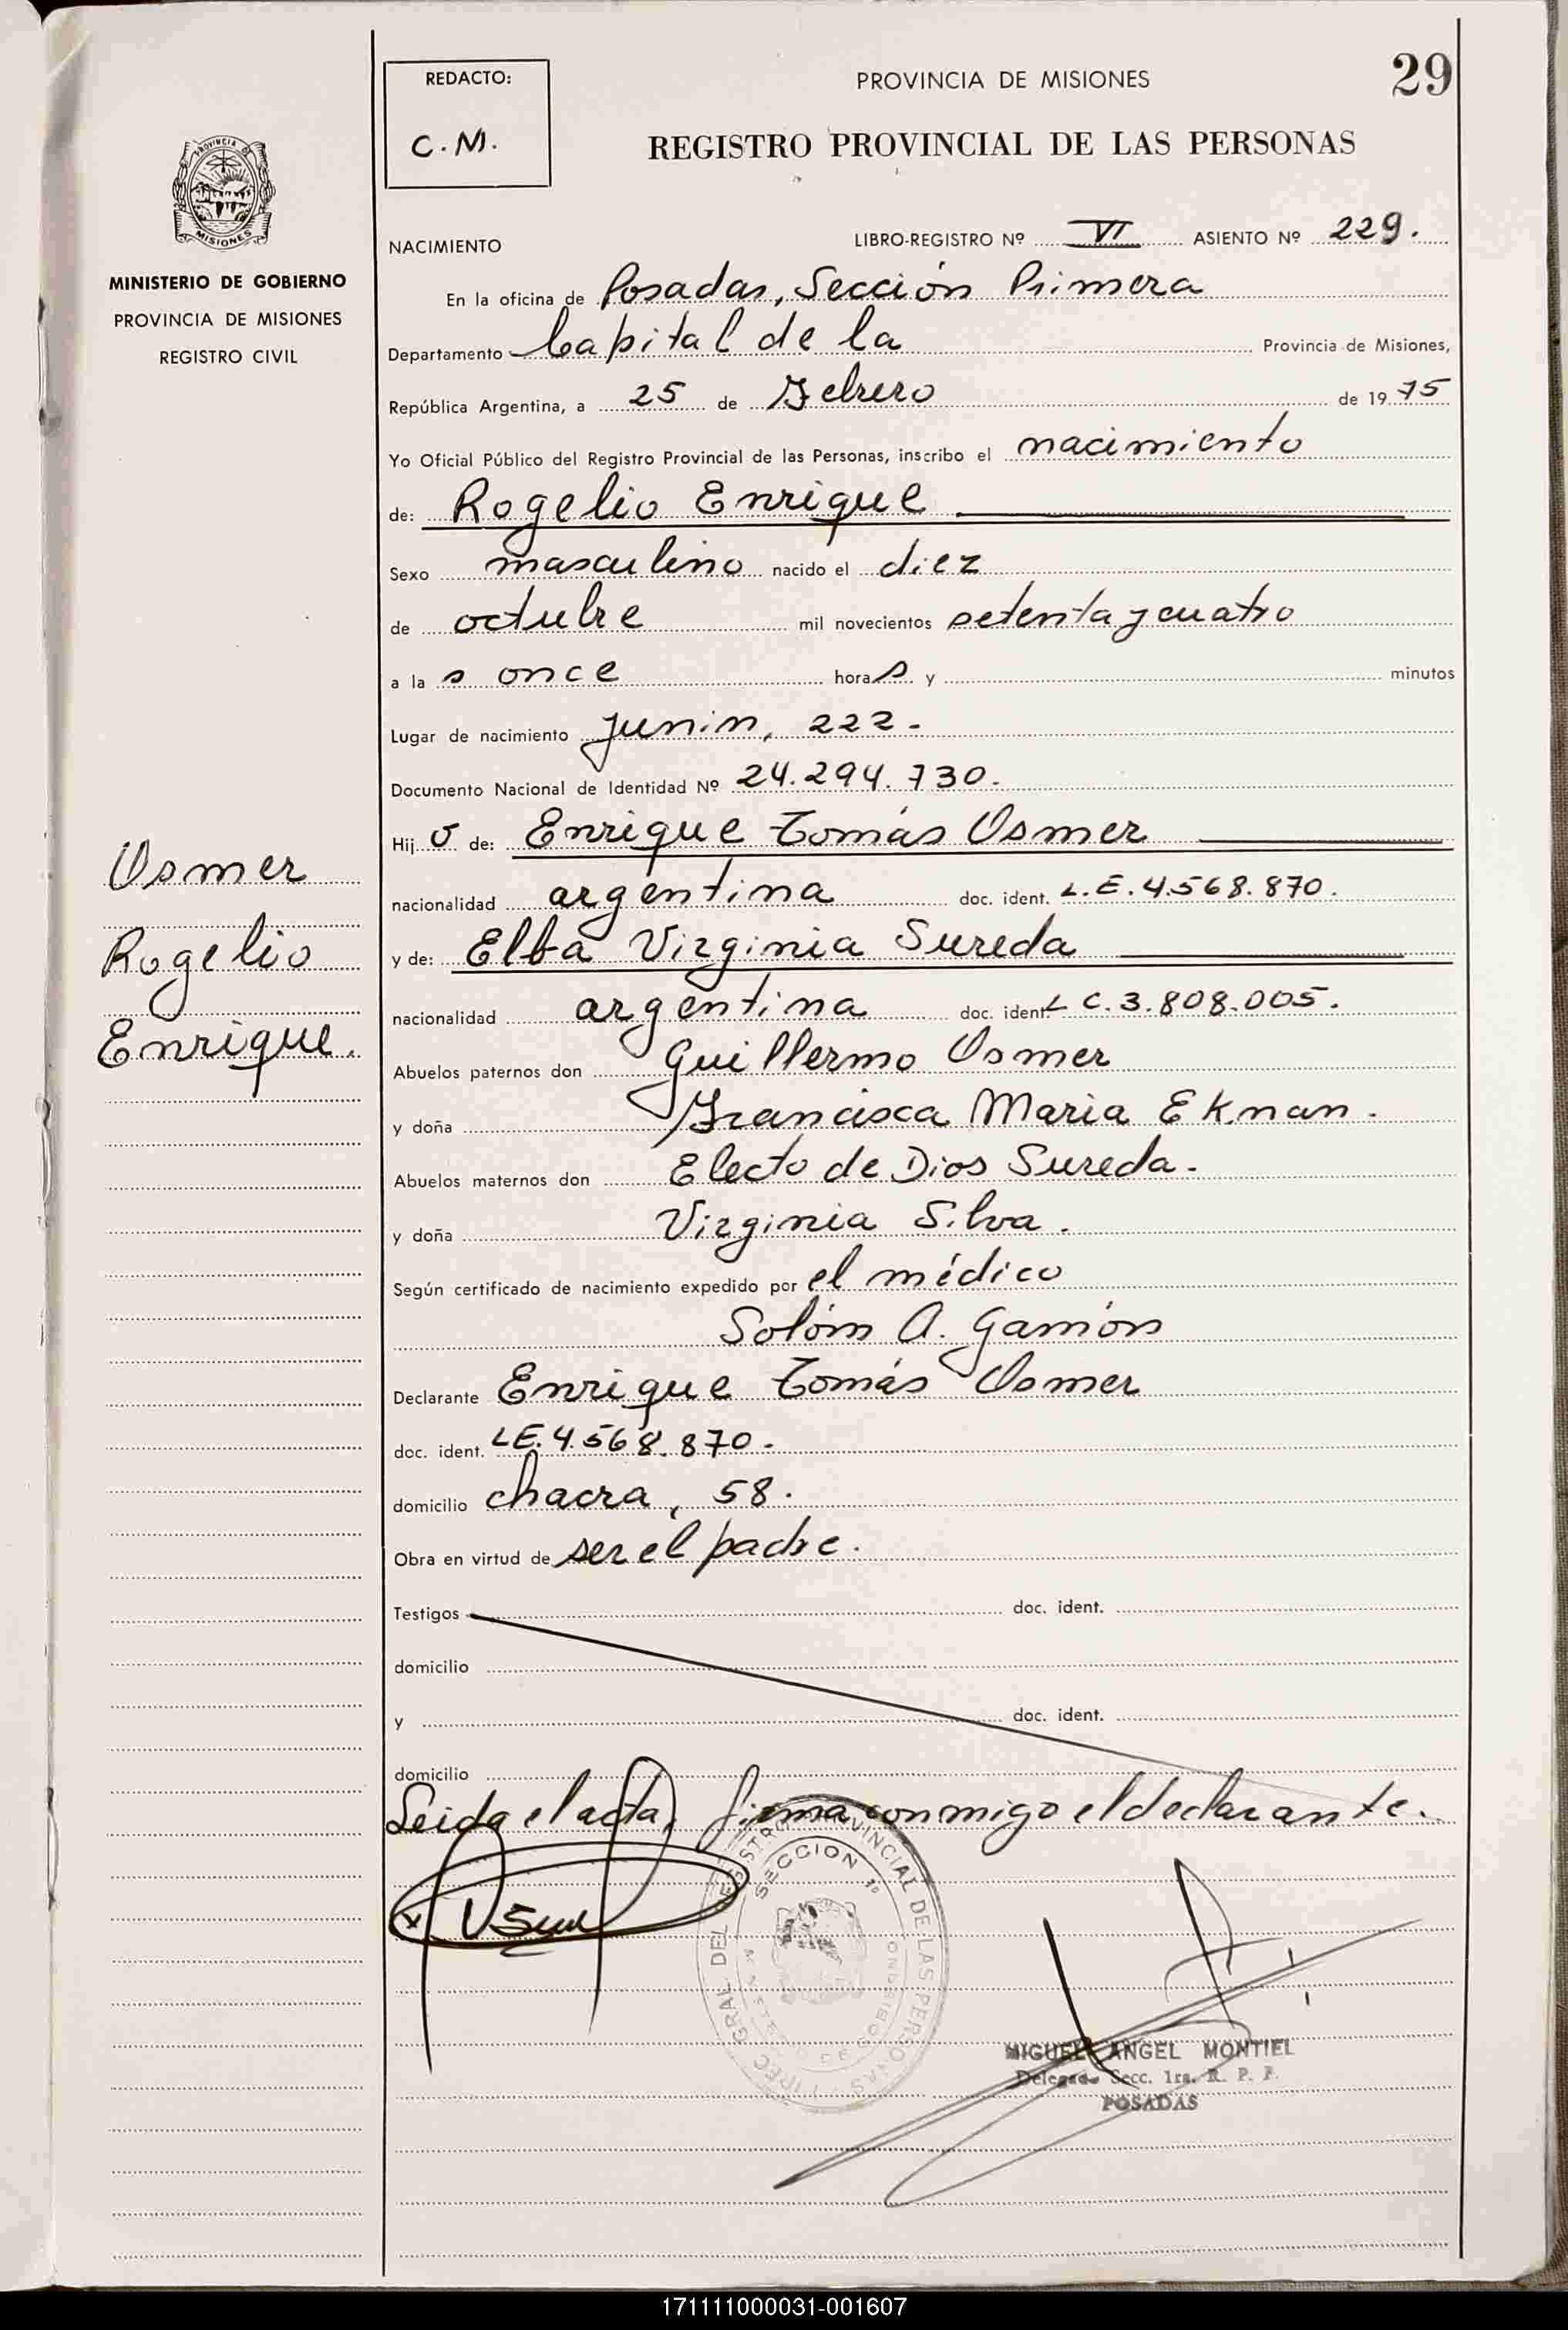 29
REDACTO:
C.M.
PROVINCIA DE MISIONES
REGISTRO PROVINCIAL DE LAS PERSONAS
PROVINCIA DE
MISIONES
MINISTERIO DE GOBIERNO
PROVINCIA DE MISIONES
REGISTRO CIVIL
NACIMIENTO LIBRO-REGISTRO Nº VI ASIENTO Nº 229.
En la oficina de Posadas, Sección Primera
Departamento Capital de la Provincia de Misiones,
República Argentina, a 25 de Febrero de 1975
Yo Oficial Público del Registro Provincial de las Personas, inscribo el nacimiento
de: Rogelio Enrique
Sexo masculino nacido el diez
de octubre mil novecientos setenta y cuatro
a la s once horas y minutos
Lugar de nacimiento Junin, 222.-
Documento Nacional de Identidad Nº 24.294.730.
Hijo de: Enrique Tomás Usmer
nacionalidad argentina doc. ident. L.E.4.568.870.
y de: Elba Virginia Sureda
nacionalidad argentina doc. ident. L C.3.808.005.
Abuelos paternos don Guillermo Usmer
y doña Francisca Maria Ekman.
Abuelos maternos don Electo de Dios Sureda.
y doña Virginia Silva.
Según certificado de nacimiento expedido por el médico
Solóm A. Gamón
Declarante Enrique Tomás Usmer
doc. ident. LE.4.568.870.
domicilio chacra, 58.
Obra en virtud de ser el padre.
Testigos doc. ident.
domicilio
y doc. ident.
domicilio
Leida el acta, firma conmigo el declarante.
Usmer
Rogelio
Enrique.
SECCION 1º
MIGUEL ANGEL MONTIEL
Delegado Secc. 1ra. R. P. P.
POSADAS
171111000031-001607